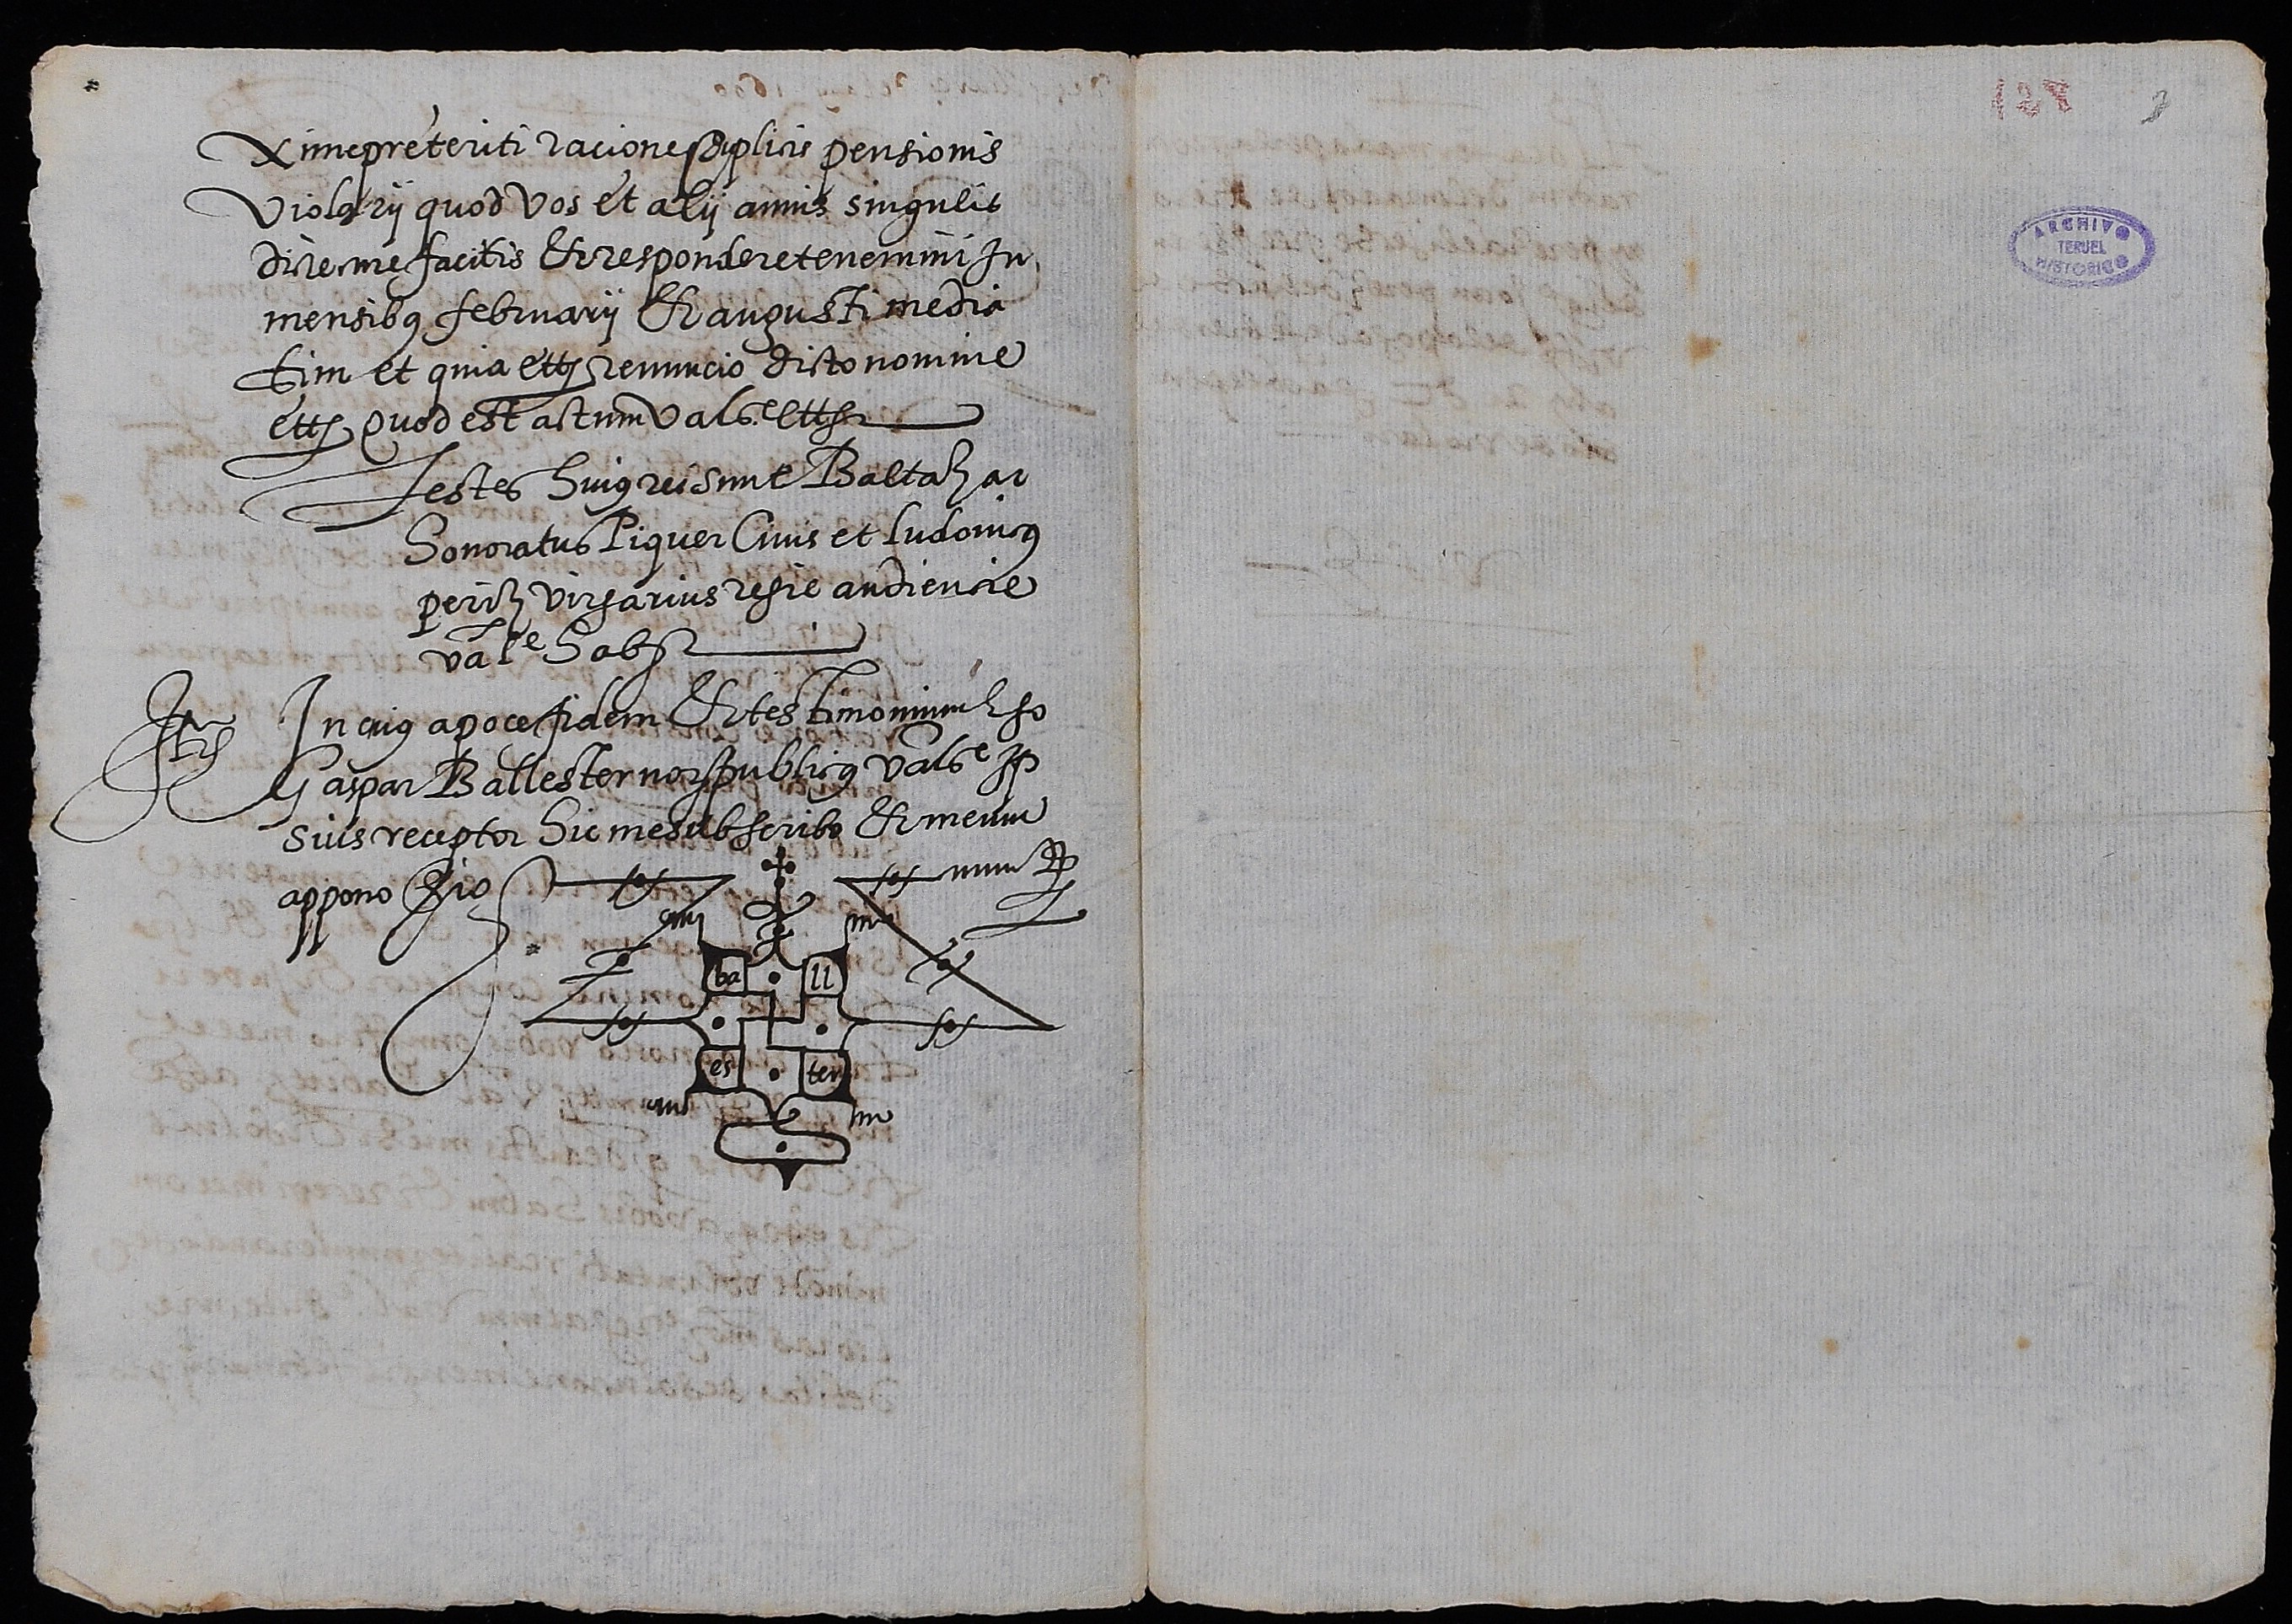 Ximepreteriti racione duplicis pensionis
Violarij quod vos et alij annis singulis
dicte me facitis Et respondere tenemini In
mensibus februarij Et augusti media
tim et quia ettz renuncio dicto nomine
ettz quod est actum Valᵉ ettz
Testes huius rei sunt Baltazar
honoratus Piquer Civis et ludovicus
periz virgarius regie audiencie
valᵉ habz
In cuius apoce fidem Et testimonium Ego
Gaspar Ballester nots publicus valᵉ Ip
sius receptor hic me subscribo Et meum
appono Sig num
ba ll
es ter
128
ARCHIVO
TERUEL
HISTORICO